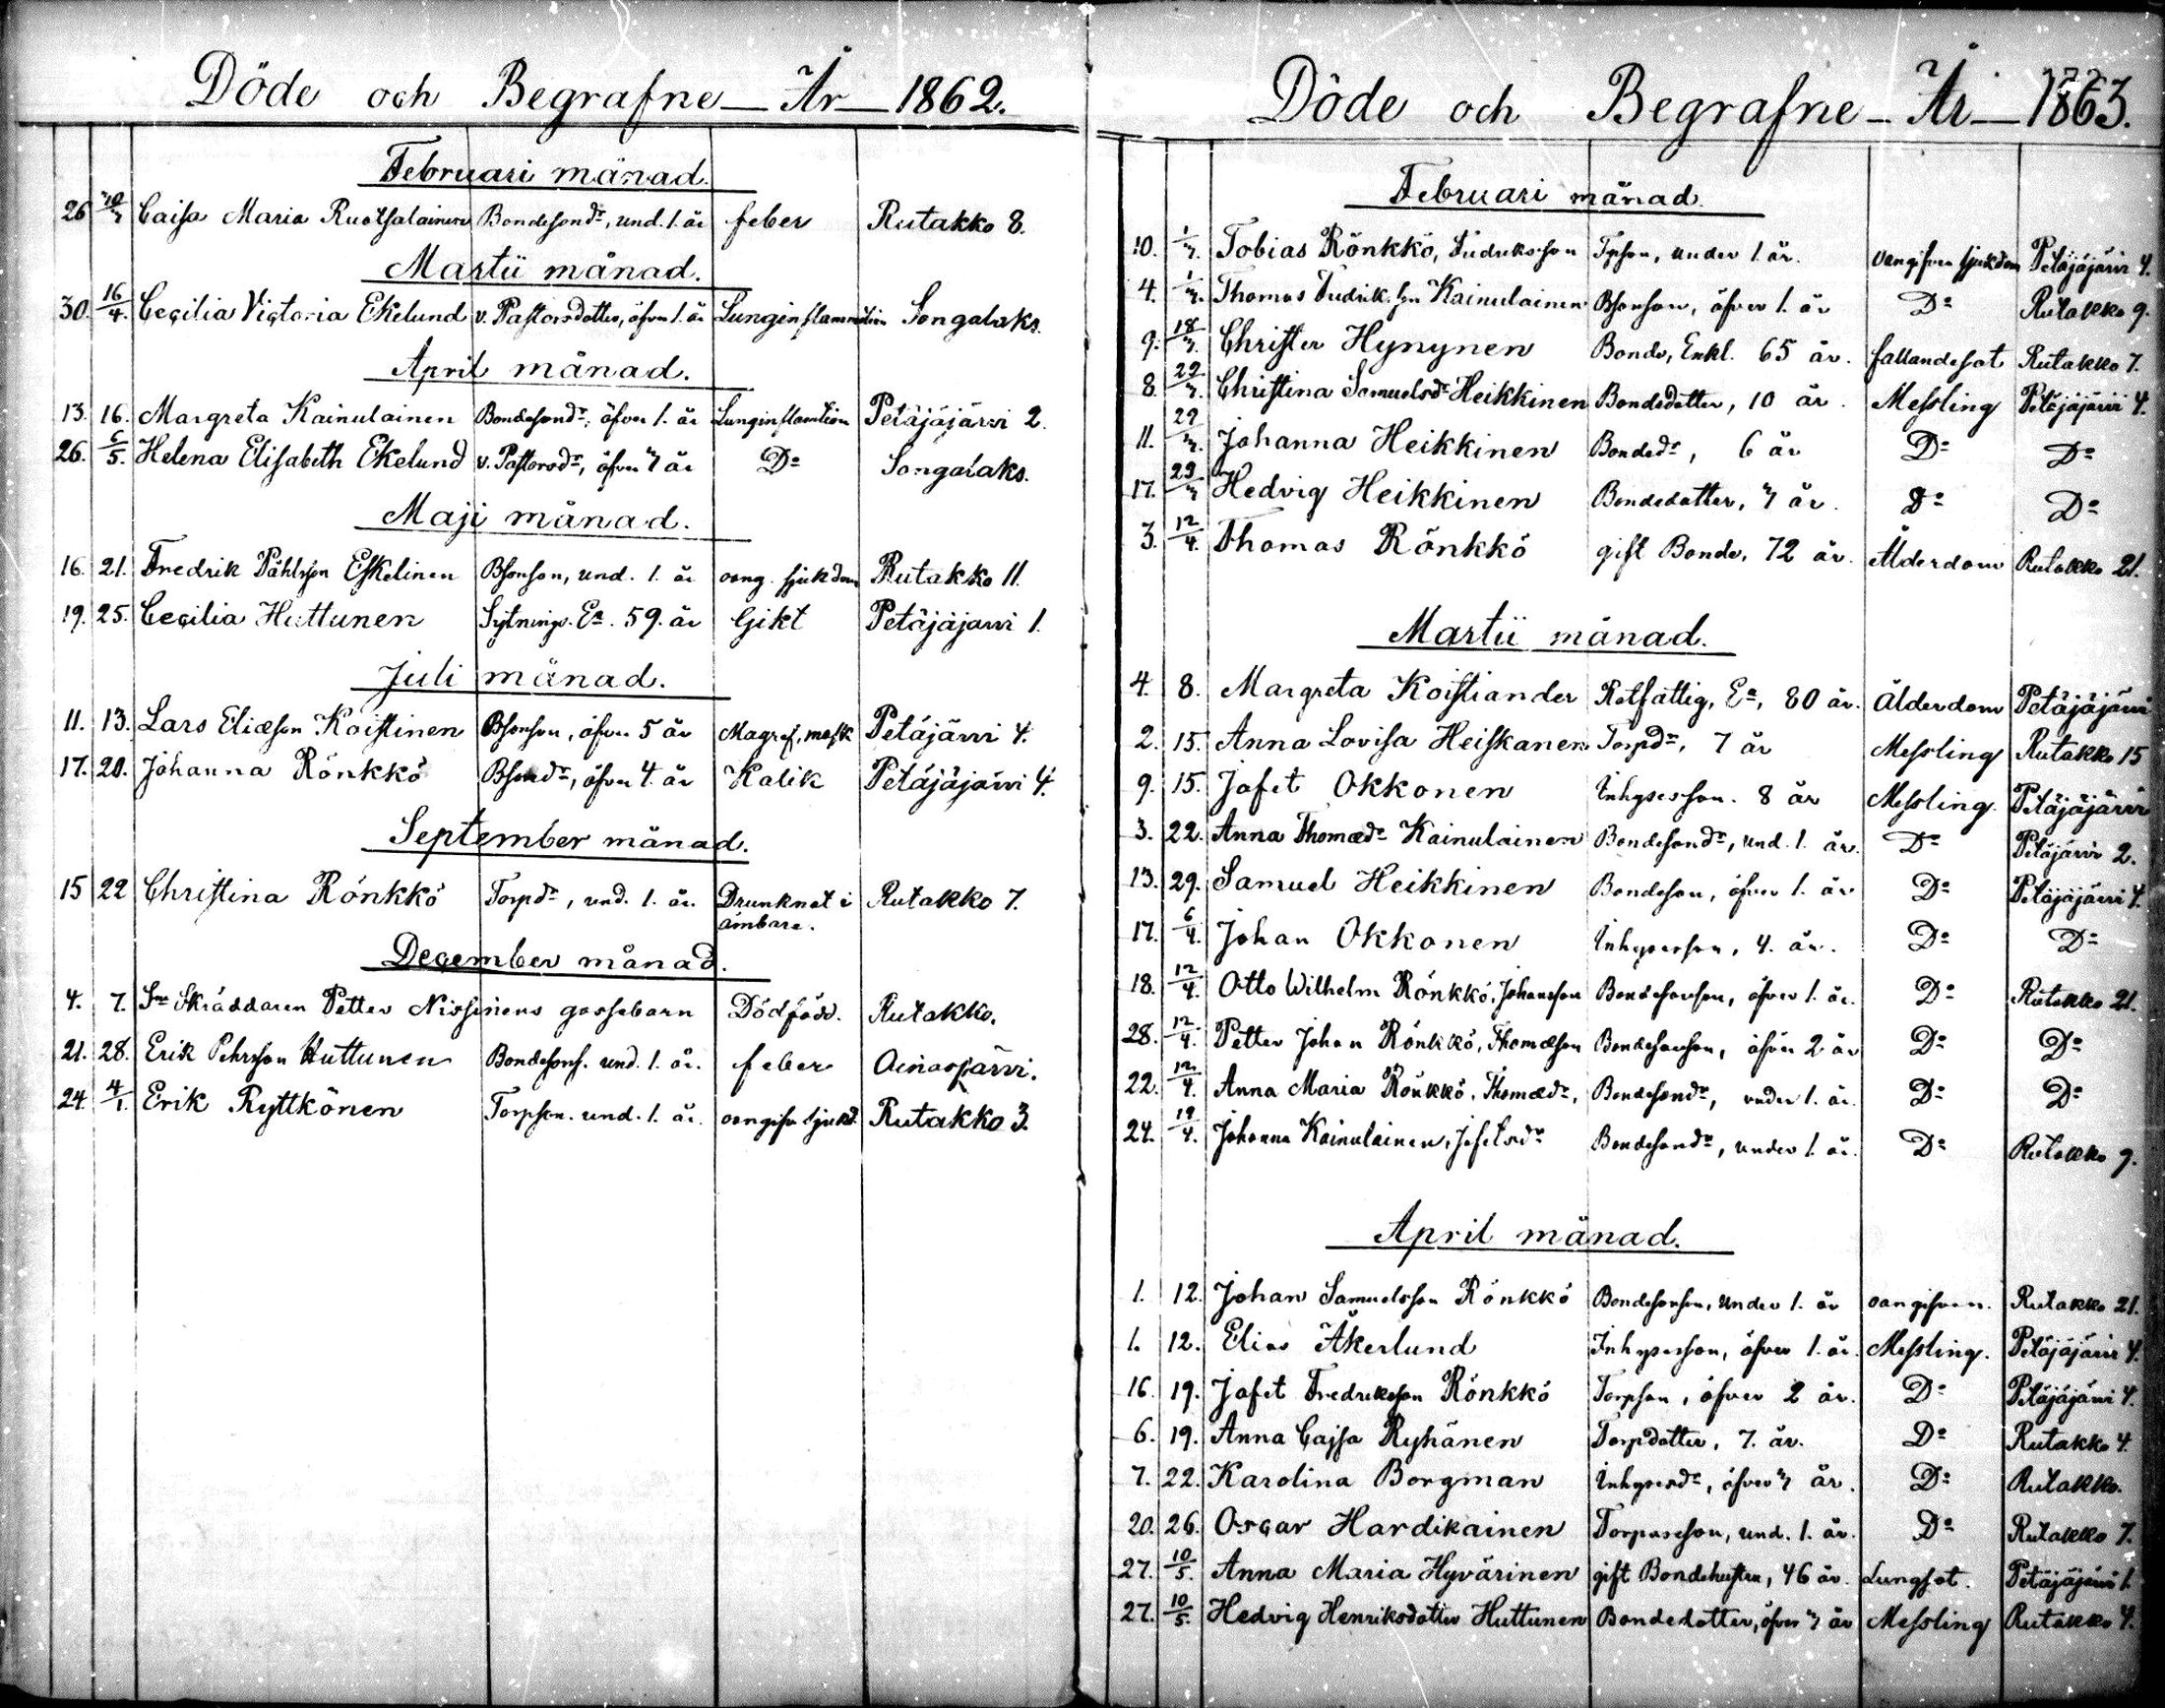 Döde och Begrafne - År - 1862.
Februari månad.
26 Caisa Maria Ruotsalainen Bondesondr, und. 1. år feber Rutakko 8.
Martii månad.
30. 16/4. Cecilia Victoria Ekelund v. Pastorsdotter, öfver 1. år Lunginflammation Songalaks.
April månad.
13. 16. Margreta Kainulainen Bondesondr, öfver 1. år Lunginflamtion Petäjäjärvi 2.
26. 6/5. Helena Elisabeth Ekelund v. Pastorsdr, öfver 3 år Do Songalaks.
Maji månad.
16. 21. Fredrik Påhlsson Eskelinen Bsonson, und. 1. år oang. sjukdom Rutakko 11.
19. 25. Cecilia Huttunen Sytnings. Ea. 59. år Gikt Petäjäjärvi 1.
Juli månad.
11. 13. Lars Eliæson Koistinen Bsonson, öfver 5 år Magref, mask Petäjärvi 4.
17. 20. Johanna Rönkkö Bsondr, öfver 4. år Kolik Petäjäjärvi 4.
September månad.
15 22 Christina Rönkkö Torpdr, und. 1. år. Drunknat i Rutakko 7.
ämbare.
December månad.
4. 7. Sn Skräddaren Petter Nissinens gossebarn Dödfödd. Rutakko.
21. 28. Erik Pehrsson Huttunen Bondesons. und. 1. år. feber Oinasjärvi.
24 4/1. Erik Ryttkönen Torpson. und. 1. år. oangifv sjukd. Rutakko 3.
Döde och Begrafne - År - 1863.
Februari månad.
10. 1/3. Tobias Rönkkö, Fredriksson Tpson, under 1. år. oangifven sjukdom Petäjäjärvi 4.
4. 1/3. Thomas Fredrik. son Kainulainen Bsonson, öfver 1. år Do Rutakko 9.
9. 18/3. Christer Hynynen Bonde, Enkl. 65 år. fallandesot Rutakko 7.
8. 29/3. Christina Samuelsdr Heikkinen Bondedotter, 10 år. Messling Petäjäjärvi 4.
11. 29/3. Johanna Heikkinen Bondedr, 6 år Do Do
17. 29/3 Hedvig Heikkinen Bondedotter, 3 år. Do Do
3. 12/4. Thomas Rönkkö gift Bonde, 72 år. Ålderdom Rutakko 21.
Martii månad.
4. 8. Margreta Koistiander Rotfattig, Ea, 80 år. Ålderdom Petäjäjärvi
2. 15. Anna Lovisa Heiskanen Torpdr, 7 år Messling Rutakko 15
9. 15. Jafet Okkonen Inhysesson. 8 år Messling. Petäjäjärvi
3. 22. Anna Thomædr Kainulainen Bondesondr, und. 1. år. Do Petäjärvi 2.
13. 29. Samuel Heikkinen Bondeson, öfver 1. år Do Petäjäjärvi 4.
17. 6/4. Johan Okkonen Inhyseson, 4. år. Do Do
18. 12/4. Otto Wilhelm Rönkkö, Johansson Bondesonson, öfver 1. år. Do Rutakko 21.
28. 12/4. Petter Johan Rönkkö, Thomæson Bondesonson, öfver 2 år Do Do
22. 12/4. Anna Maria Rönkkö, Thomædr, Bondesondr, under 1. år. Do Do
24. 19/4. Johanna Kainulainen, Jafetsdr Bondesondr, under 1. år. Do Rutakko 9.
April månad.
1. 12. Johan Samuelsson Rönkkö Bondesonson, under 1. år oangifven. Rutakko 21.
1. 12. Elias Åkerlund Inhysesson, öfver 1. år. Messling. Petäjäjärvi 4.
16. 19. Jafet Fredriksson Rönkkö Torpson, öfver 2 år. Do Petäjäjärvi 4.
6. 19. Anna Cajsa Ryhänen Torpdotter, 7. år. Do Rutakko 4.
7. 22. Karolina Borgman Inhysesdr, öfver 3 år. Do Rutakko.
20. 26. Oscar Hardikainen Torpareson, und. 1. år. Do Rutakko 7.
27. 10/5. Anna Maria Hyvärinen gift Bondehustru, 46 år. Lungsot. Petäjäjärvi 1.
27. 10/5. Hedvig Henriksdotter Huttunen Bondedotter, öfver 3 år Messling Rutakko 4.